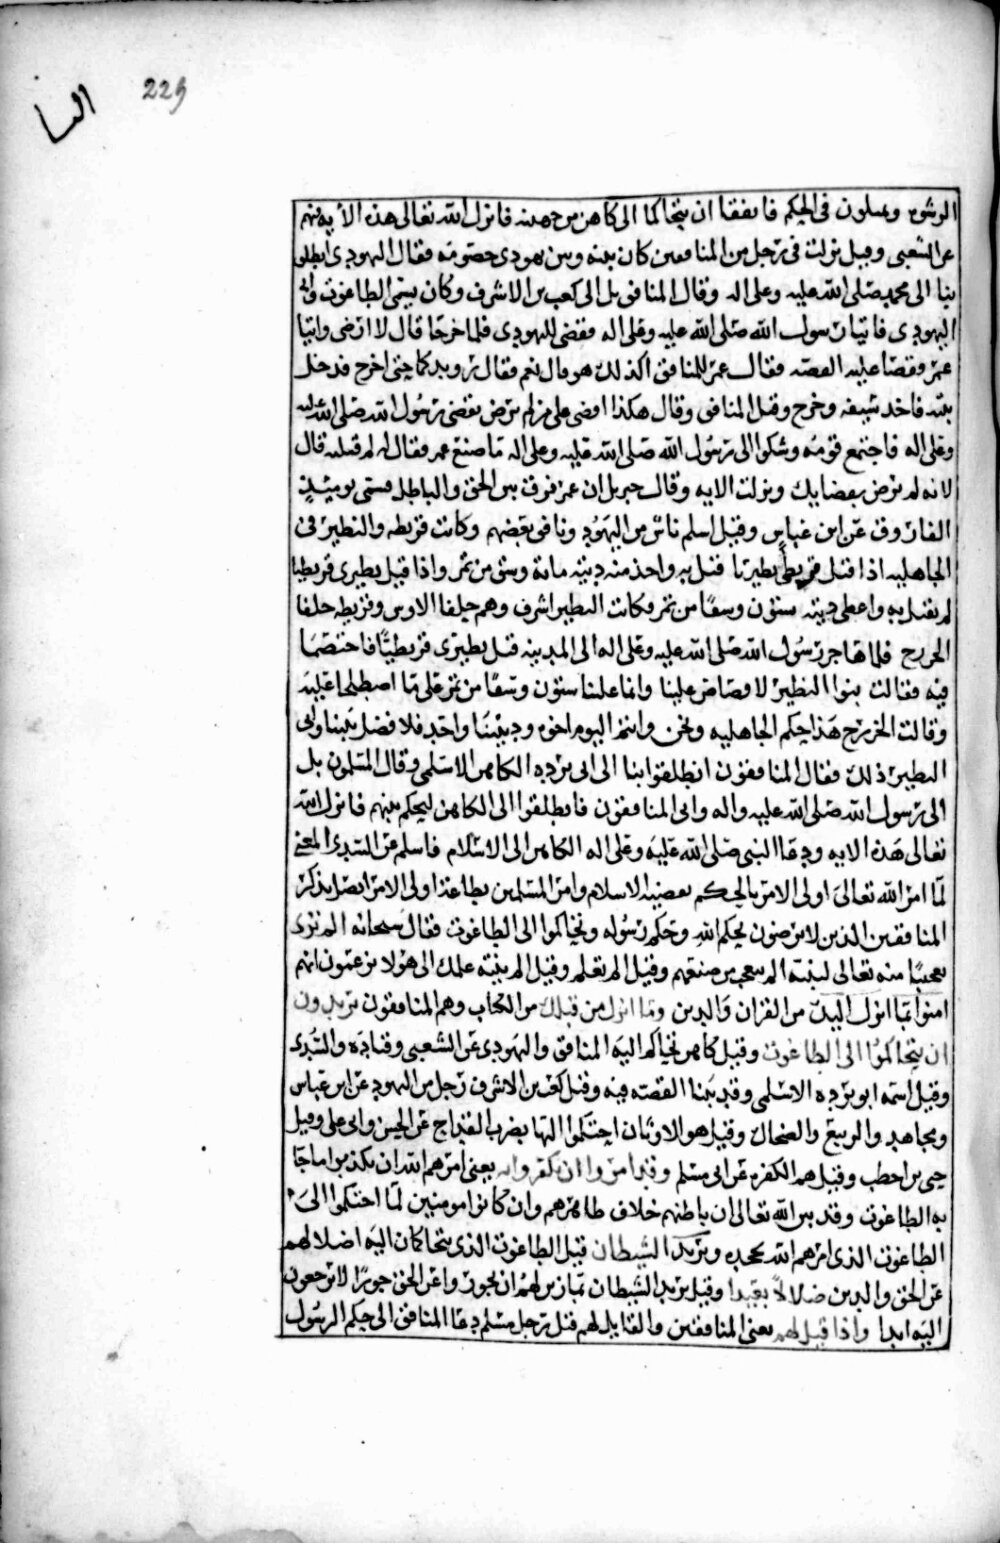 229
النسا
الرشوه ويميلون فى الحكم فاتفقا ان يتحاكما الى كاهن من جهينه فانزل الله تعالى هذه الأيه فيهم
عن الشعبى وقيل نزلت فى رجل من المنافقين كان بينه وبين يهودى خصومه فقال اليهودى انطلق
بنا الى محمد صلى الله عليه وعلى اله وقال المنافق بل الى كعب بن الاشرف وكان يسمى الطاغوت وابى
اليهودى فاتيا رسول الله صلى الله عليه وعلى اله وقضى لليهودى فلما خرجا قال لا ارضى واتيا
عمر وقصا عليه القصه فقال عمر للمنافق اكذلك هو قال نعم فقال رويدكما حتى اخرج فدخل
بيته فاخذ سيفه وخرج وقتل المنافق وقال هكذا اقضى على من لم يرض بقضى رسول الله صلى الله عليه
وعلى اله فاجتمع قومه وشكوا الى رسول الله صلى الله عليه وعلى اله ما صنع عمر فقال له لم قتلته قال
لانه لم يرض بقضايك ونزلت الايه وقال جبريل ان عمر فرق بين الحق والباطل فسمى يوميذ
الفاروق عن ابن عباس وقيل اسلم ناس من اليهود ونافق بعضهم وكانت قريظه والنظير فى
الجاهليه اذا قتل قريظى نظيريا قتل به واخذ منه ديته مائة وسق من تمر واذا قتل نظيرى قريظيا
لم يقتل به واعطى ديته ستون وسقا من تمر وكانت النظير اشرف وهم حلفا الاوس وقريظه حلفا
الخزرج فلما هاجر رسول الله صلى الله عليه وعلى اله الى المدينه قتل نظيرى قريظيا فاختصما
فيه فقالت بنوا النظير لا قصاص علينا وانما علينا ستون وسقا من تمر على ما اصطلحنا عليه
وقالت الخزرج هذا حكم الجاهليه ونحن وانتم اليوم اخوه وديننا واحد فلا فضل بيننا وابى
النظير ذلك فقال المنافقون انطلقوا بنا الى ابى برده الكاهن الاسلمى وقال المسلمون بل
الى رسول الله صلى الله عليه واله وابى المنافقون فانطلقوا الى الكاهن ليحكم بينهم فانزل الله
تعالى هذه الايه ودعا النبى صلى الله عليه وعلى اله الكاهن الى الاسلام فاسلم عن السدى المعنى
لما امر الله تعالى اولى الامر بالحكم بقضيه الاسلام وامر المسلمين بطاعة اولى الامر اتصل بذكر
المنافقين الذين لا يرضون بحكم الله وحكم رسوله وتحاكموا الى الطاغوت فقال سبحانه الم ترى
تعجبا منه تعالى لنبيه الم تعجب من صنعهم وقيل الم تعلم وقيل الم ينته علمك الى هولا يزعمون انهم
امنوا بما انزل اليك من القران والدين وما انزل من قبلك من الكتاب وهم المنافقون يريدون
ان يتحاكموا الى الطاغوت وقيل كاهن تحاكم اليه المنافق واليهودى عن الشعبى وقتاده والسدى
وقيل اسمه ابو برده الاسلمى وقد بينا القصه فيه وقيل كعب بن الاشرف رجل من اليهود عن ابن عباس
ومجاهد والربيع والضحاك وقيل هو الاوثان احتكموا اليها بضرب القداح عن الحسن وابى على وقيل
حيى بن اخطب وقيل هم الكفره عن ابى مسلم وقد امروا ان يكفروا به يعنى امرهم الله ان يكذبوا ما جا
به الطاغوت وقد بين الله تعالى ان باطنهم خلاف ظاهرهم وان كانوا مومنين لما احتكموا الى
الطاغوت الذى امرهم الله بجحده ويريد الشيطان قيل الطاغوت الذى يتحاكمان اليه اضلالهم
عن الحق والدين ضلالا بعيدا وقيل يريد الشيطان بما زين لهم ان يجوروا عن الحق جورا لا يرجعون
اليه ابدا واذا قيل لهم يعنى المنافقين والقايل لهم قيل رجل مسلم دعا المنافق الى حكم الرسول